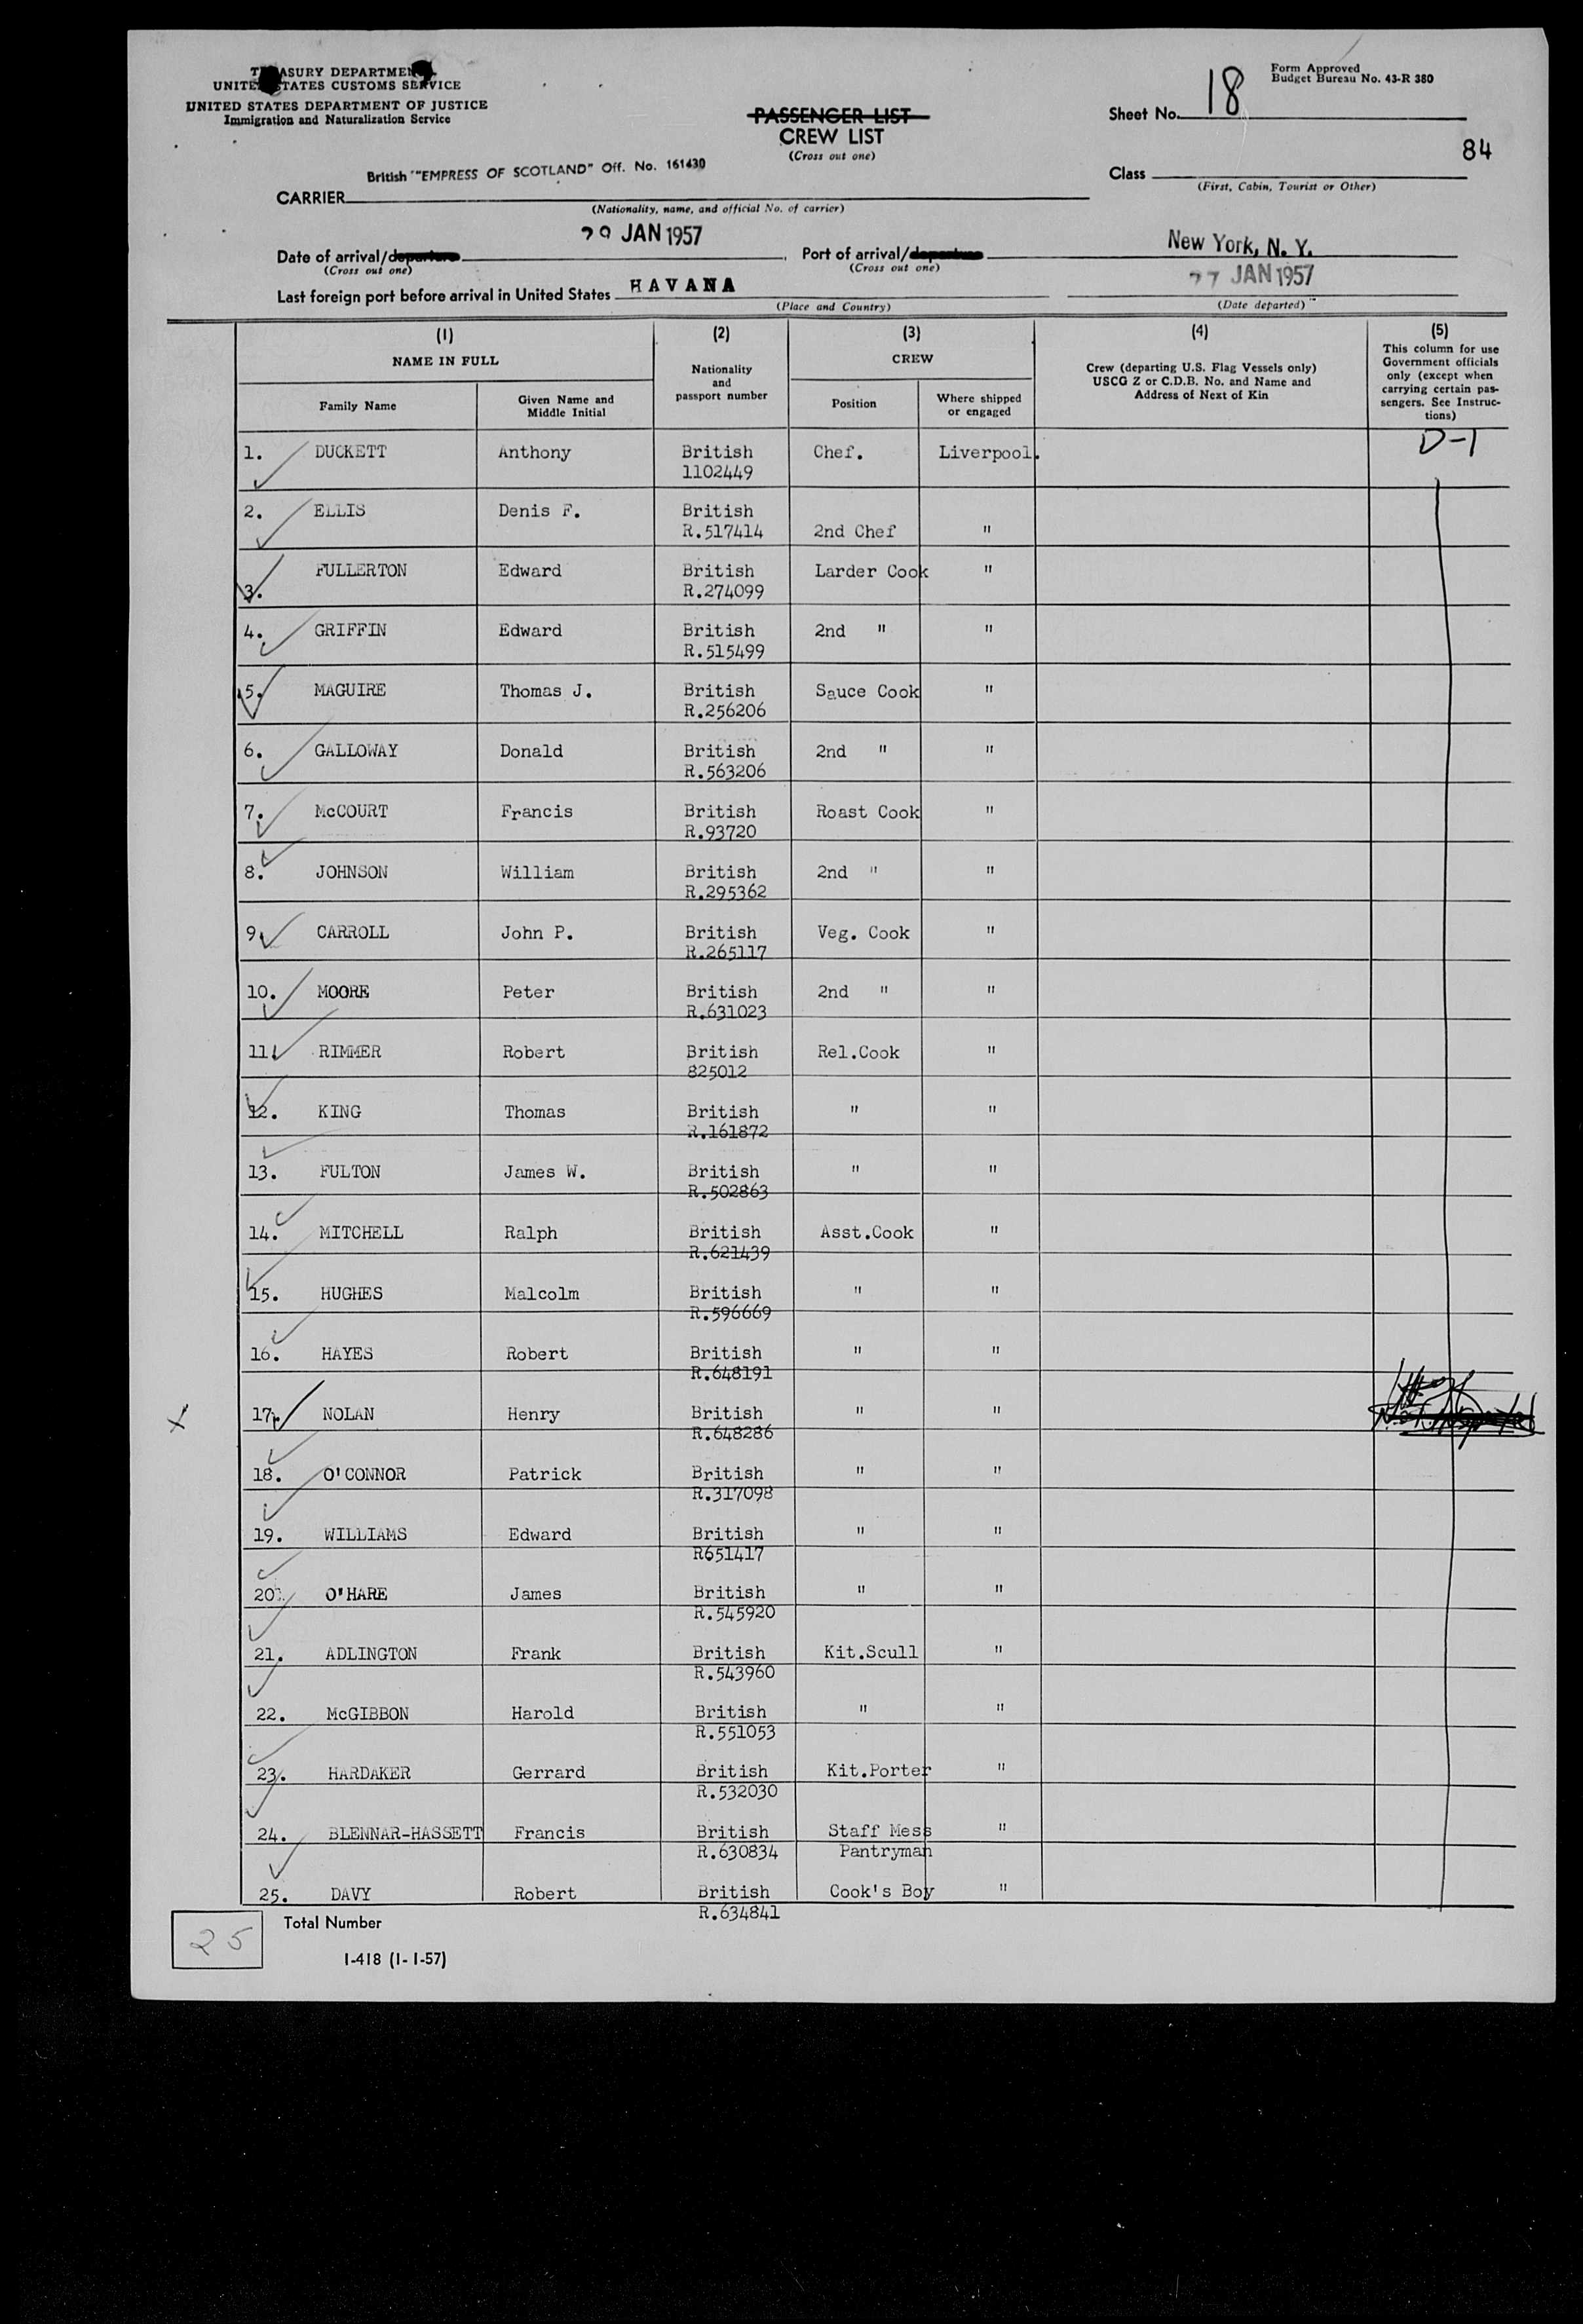 TREASURY DEPARTMENT
UNITED STATES CUSTOMS SERVICE
UNITED STATES DEPARTMENT OF JUSTICE
Immigration and Naturalization Service
PASSENGER LIST
CREW LIST
(Cross out one)
Form Approved
Budget Bureau No. 43-R 380
Sheet No. 18
84
Class
(First, Cabin, Tourist or Other)
British "EMPRESS OF SCOTLAND" Off. No. 161430
CARRIER
(Nationality, name, and official No. of carrier)
Date of arrival/departure 29 JAN 1957, Port of arrival/departure New York, N. Y.
(Cross out one) (Cross out one)
Last foreign port before arrival in United States HAVANA 27 JAN 1957
(Place and Country) (Date departed)
(1) (2) (3) (4) (5)
NAME IN FULL
Family Name
Given Name and
Middle Initial
Nationality
and
passport number
CREW
Position
Where shipped
or engaged
Crew (departing U.S. Flag Vessels only)
USCG Z or C.D.B. No. and Name and
Address of Next of Kin
This column for use
Government officials
only (except when
carrying certain pas-
sengers. See Instruc-
tions)
1. DUCKETT Anthony British Chef. Liverpool. D-1
1102449
2. ELLIS Denis F. British
R.517414 2nd Chef "
3. FULLERTON Edward British Larder Cook "
R.274099
4. GRIFFIN Edward British 2nd " "
R.515499
5. MAGUIRE Thomas J. British Sauce Cook "
R.256206
6. GALLOWAY Donald British 2nd " "
R.563206
7. McCOURT Francis British Roast Cook "
R.93720
8. JOHNSON William British 2nd " "
R.295362
9. CARROLL John P. British Veg. Cook "
R.265117
10. MOORE Peter British 2nd " "
R.631023
11. RIMMER Robert British Rel.Cook "
825012
12. KING Thomas British " "
R.161872
13. FULTON James W. British " "
R.502863
14. MITCHELL Ralph British Asst.Cook "
R.621439
15. HUGHES Malcolm British " "
R.596669
16. HAYES Robert British " "
R.648191
X 17. NOLAN Henry British " "
R.648286
18. O'CONNOR Patrick British " "
R.317098
19. WILLIAMS Edward British " "
R651417
20. O'HARE James British " "
R.545920
21. ADLINGTON Frank British Kit.Scull "
R.543960
22. McGIBBON Harold British " "
R.551053
23. HARDAKER Gerrard British Kit.Porter "
R.532030
24. BLENNAR-HASSETT Francis British Staff Mess "
R.630834 Pantryman
25. DAVY Robert British Cook's Boy "
R.634841
25 Total Number
I-418 (1-1-57)